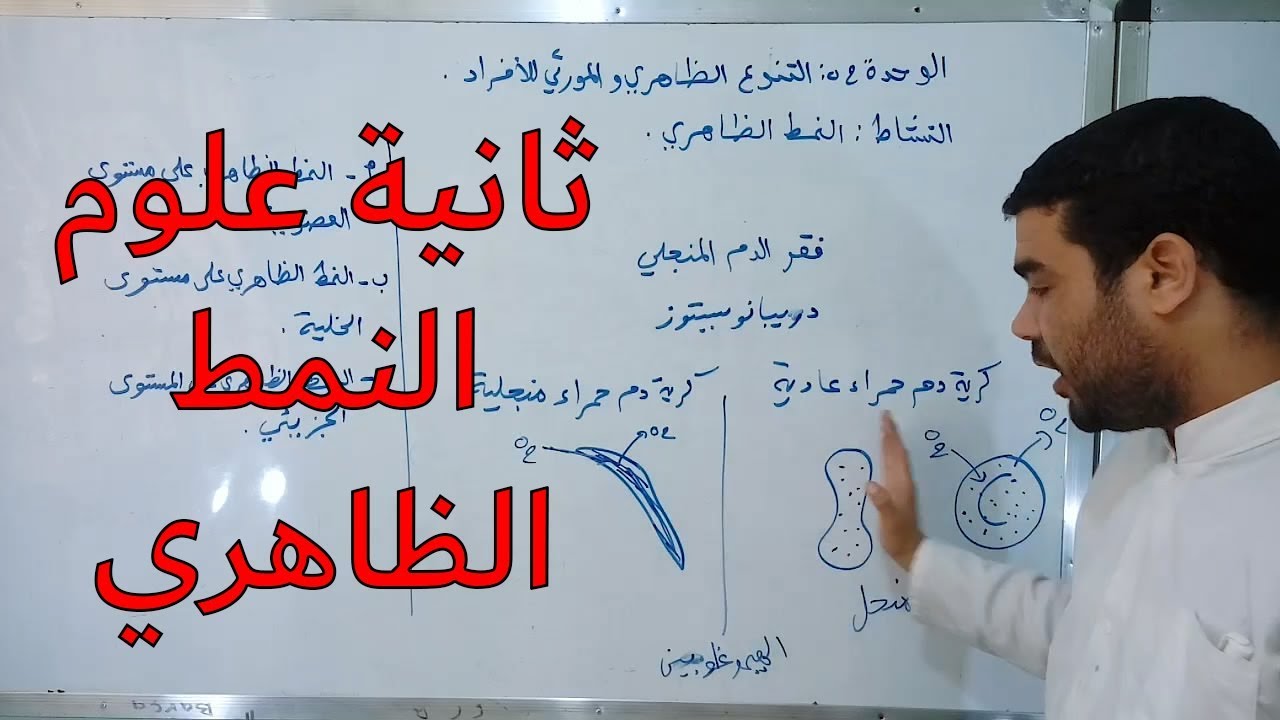 الوحدة 02: التنوع الظاهري والمورثي للأفراد.
النشاط: النمط الظاهري.
ثانية علوم
النمط
الظاهري
أ- النمط الظاهري على مستوى
العضوية
ب- النمط الظاهري على مستوى
الخلية.
النمط الظاهري على المستوى
الجزيئي.
فقر الدم المنجلي
دريبانوسيتوز
كرية دم حمراء عادية
كرية دم حمراء منجلية
O2
O2
O2
O2
منجل
الهيموغلوبين
Barça